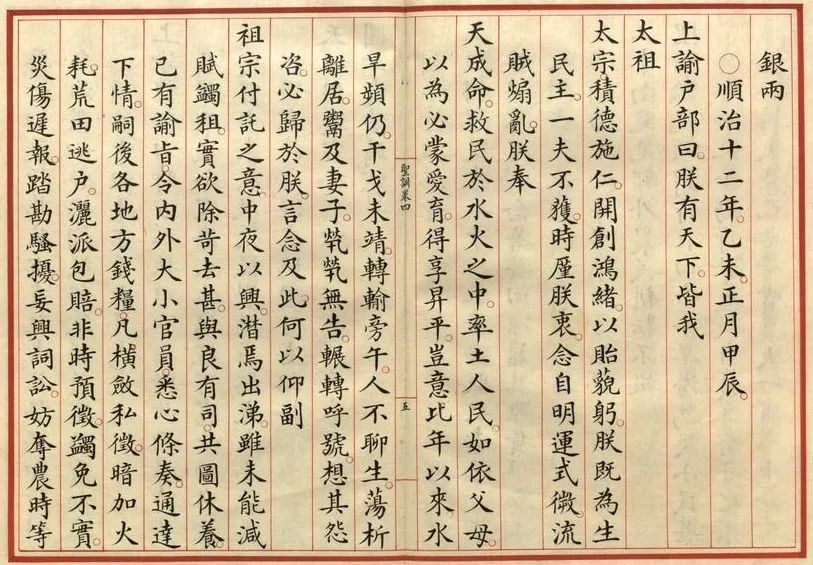 銀兩
○順治十二年乙未正月甲辰
上諭户部曰朕有天下皆我
太祖
太宗積德施仁開創鴻緒以貽藐躬朕既為生
民主一夫不獲時厪朕衷念自明運式微流
賊煽亂朕奉
天成命救民於水火之中率土人民如依父母
以為必蒙愛育得享昇平豈意比年以來水
聖訓卷四
五
旱頻仍干戈未靖轉輸旁午人不聊生蕩析
離居鬻及妻子煢煢無告輾轉呼號想其怨
咨必歸於朕言念及此何以仰副
祖宗付託之意中夜以興潸焉出涕雖未能減
賦蠲租實欲除苛去甚與良有司共圖休養
已有諭旨令内外大小官員悉心條奏通達
下情嗣後各地方錢糧凡橫斂私徵暗加火
耗荒田逃户灑派包賠非時預徵蠲免不實
災傷遲報踏勘騷擾妄興詞訟妨奪農時等